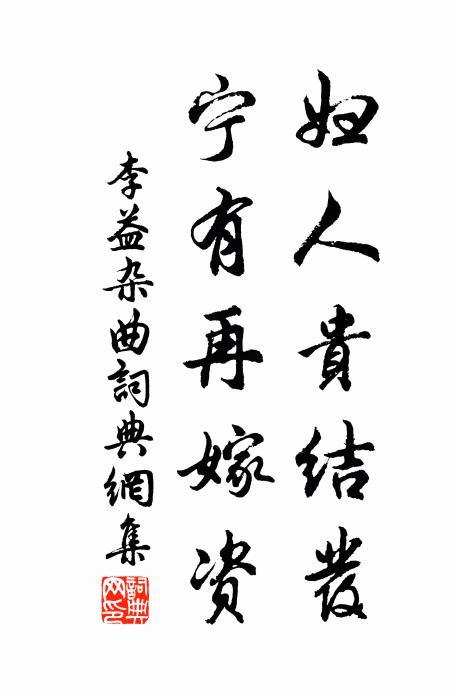 妇人貴结发
宁有再嫁资
李益杂曲詞典網集
詞典网印